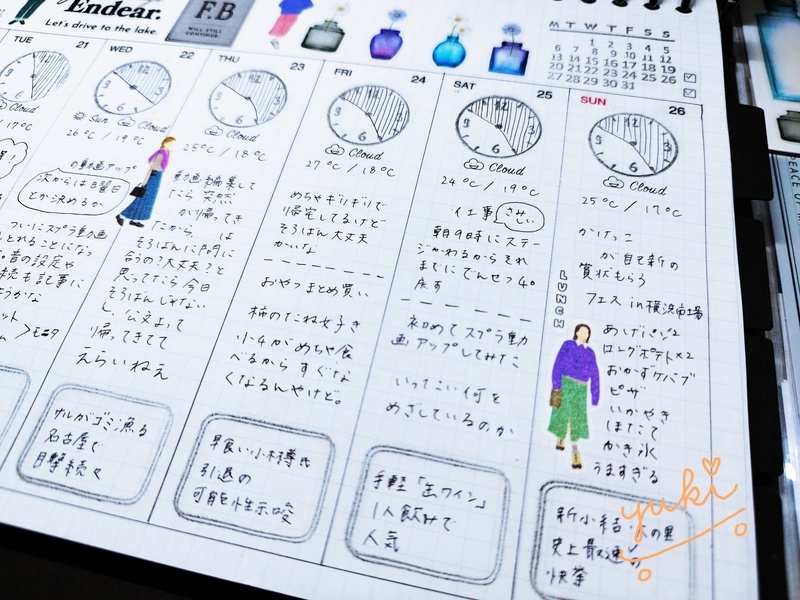 Endear.
Let's drive to the lake.
F.B
WILL STILL
CONTINUE.
M T W T F S S
1 2 3 4 5
6 7 8 9 10 11 12
13 14 15 16 17 18 19
20 21 22 23 24 25 26
27 28 29 30 31
TUE 21
Cloud
17°C
WED 22
12
3
6
Sun Cloud
26°C / 19°C
の動画アップ
次からは日曜日
とか決めるか
ついにスプラ動画
音の設定や
続も記事に
ようかな
ット
>モニタ
サルがゴミ漁る
名古屋で
目撃続々
THU 23
Cloud
25°C / 18°C
動画編集して
たら突然
が帰ってき
たから、は
そろばんに間に
合うの？大丈夫？と
思ってたら今日
そろばんじゃない
し、公文よって
帰ってきてて
えらいねえ
早食い小林尊氏
引退の
可能性示唆
FRI 24
Cloud
27°C / 18°C
めちゃギリギリで
帰宅してるけど
そろばん大丈夫
かいな
おやつまとめ買い
柿のたね女子き
小4がめちゃ食
べるからすぐな
くなるんやけど。
手軽「缶ワイン」
1人飲みで
人気
SAT 25
Cloud
24°C / 19°C
仕事
さみしい
朝9時にステー
ジかわるからそれ
までにでんせつ40
初めてスプラ動
画アップしてみた
いったい何を
めざしているのか
新小結
史上最速の
快挙
SUN 26
12
3
6
Cloud
25°C / 17°C
かけっこ
が自己新の
賞状もらう
フェス in 横浜市場
LUNCH
あげパン×2
ロングポテト×2
おかずケバブ
ピザ
いかやき
ほたて
かき氷
うますぎる
yuki